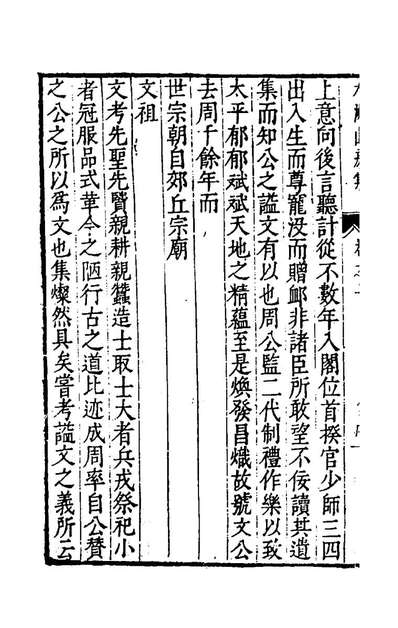 上意向後言聽計從不數年入閣位首揆官少師三四
出入生而尊寵沒而贈䘏非諸臣所敢望不佞讀其遺
集而知公之謚文有以也周公監二代制禮作樂以致
太平郁郁斌斌天地之精蘊至是煥發昌熾故號文公
去周千餘年而
世宗朝自郊丘宗廟
文祖
文考先聖先賢親耕親蠶造士取士大者兵戎祭祀小
者冠服品式革今之陋行古之道比迹成周率自公贊
之公之所以爲文也集燦然具矣嘗考謚文之義所云